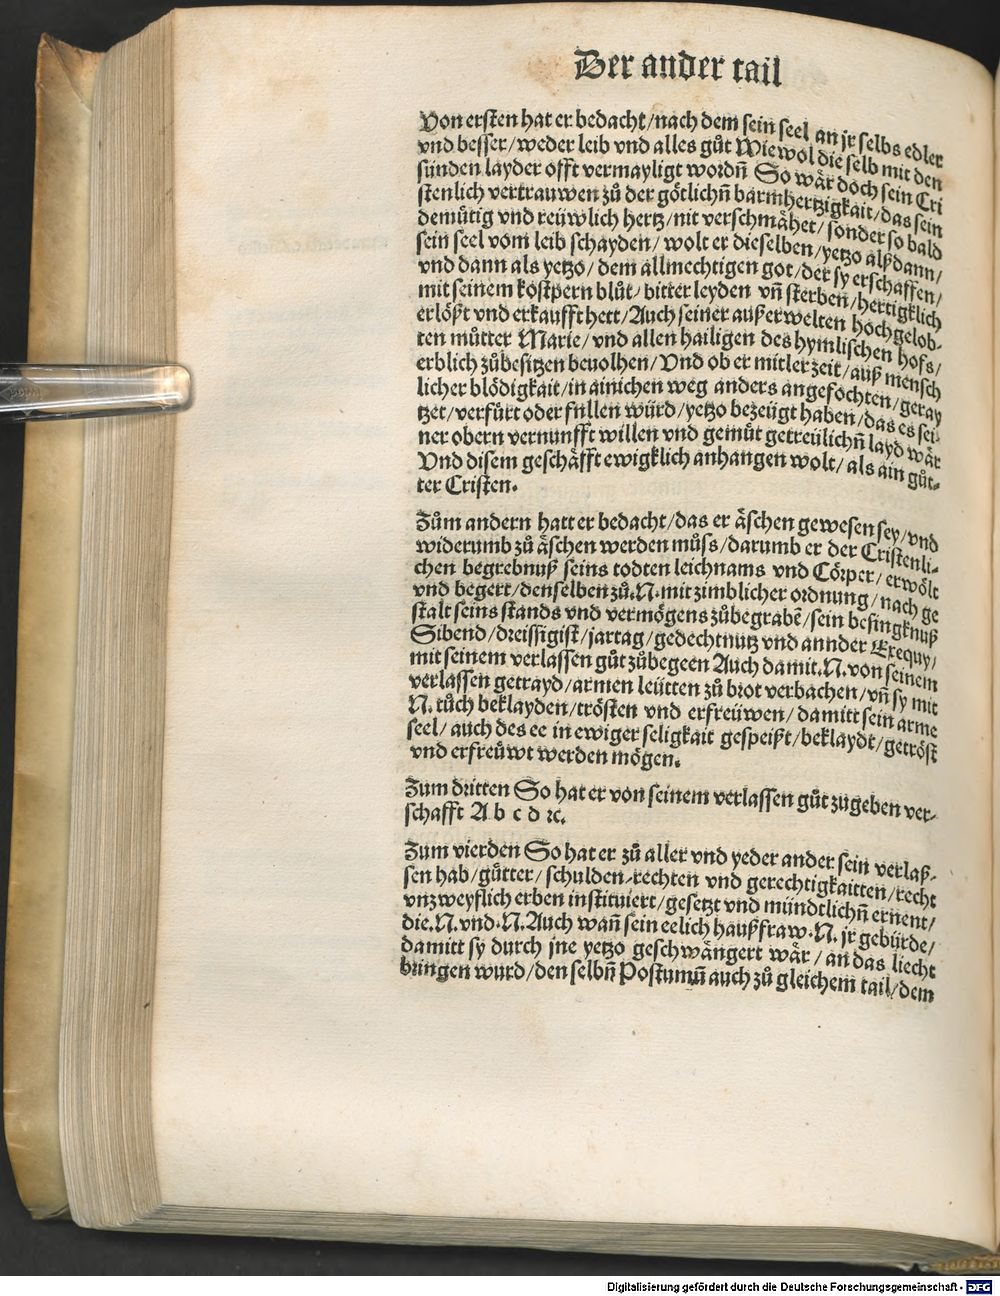 Der ander tail
Von ersten hat er bedacht/nach dem sein seel an jr selbs edler
vnd besser/weder leib vnd alles gůt Wiewol die selb mit den
sünden layder offt vermayligt wordñ So wär doch sein Cri
stenlich vertrauwen zů der götlichñ barmhertzigkait/das sein
demütig vnd reüwlich hertz/nit verschmähet/sonder so bald
sein seel vom leib schayden/wolt er dieselben/yetzo alßdann/
vnd dann als yetzo/dem allmechtigen got/der sy erschaffen/
mit seinem kostpern blůt/bitter leyden vñ sterben/hertigklich
erlößt vnd erkaufft hett/Auch seiner außerwelten hochgelob-
ten můtter Marie/vnd allen hailigen des hymlischen hofs/
erblich zůbesitzen beuolhen/Vnd ob er mitler zeit/auß mensch
licher blödigkait/in ainichen weg anders angefochten/geray
tzet/verfürt oder fallen würd/yetzo bezeügt haben/das es sei-
ner obern vernunfft willen vnd gemüt getreülichñ layd wär
Vnd disem geschäfft ewigklich anhangen wolt/als ain gůt-
ter Cristen.
Zům andern hatt er bedacht/das er äschen gewesen sey/vnd
widerumb zů äschen werden můss/darumb er der Cristenli-
chen begrebnuß seins todten leichnams vnd Cörper/erwölt
vnd begert/denselben zů.N.mit zimblicher ordnung/nach ge
stalt seins stands vnd vermögens zůbegrabẽ/sein besingknuß
Sibend/dreissigist/jartag/gedechtnutz vnd annder Exequy/
mit seinem verlassen gůt zůbegeen Auch damit.N.von seinem
verlassen getrayd/armen leütten zů brot verbachen/vñ sy mit
N.tůch beklayden/trösten vnd erfreüwen/damitt sein arme
seel/auch des ee in ewiger seligkait gespeißt/beklaydt/getröst
vnd erfreüwt werden mögen.
Zum dritten So hat er von seinem verlassen gůt zůgeben ver-
schafft A b c d ꝛc.
Zum vierden So hat er zů aller vnd yeder ander sein verlaß-
sen hab/gůtter/schulden-rechten vnd gerechtigkaitten/recht
vnzweyflich erben instituiert/gesetzt vnd mündtlichñ ernent/
die.N.vnd.N.Auch wañ sein eelich haußfraw.N.jr gebürde/
damitt sy durch jne yetzo geschwängert wär/an das liecht
bringen wurd/den selbñ Postumũ auch zů gleichem tail/dem
Digitalisierung gefördert durch die Deutsche Forschungsgemeinschaft - DFG